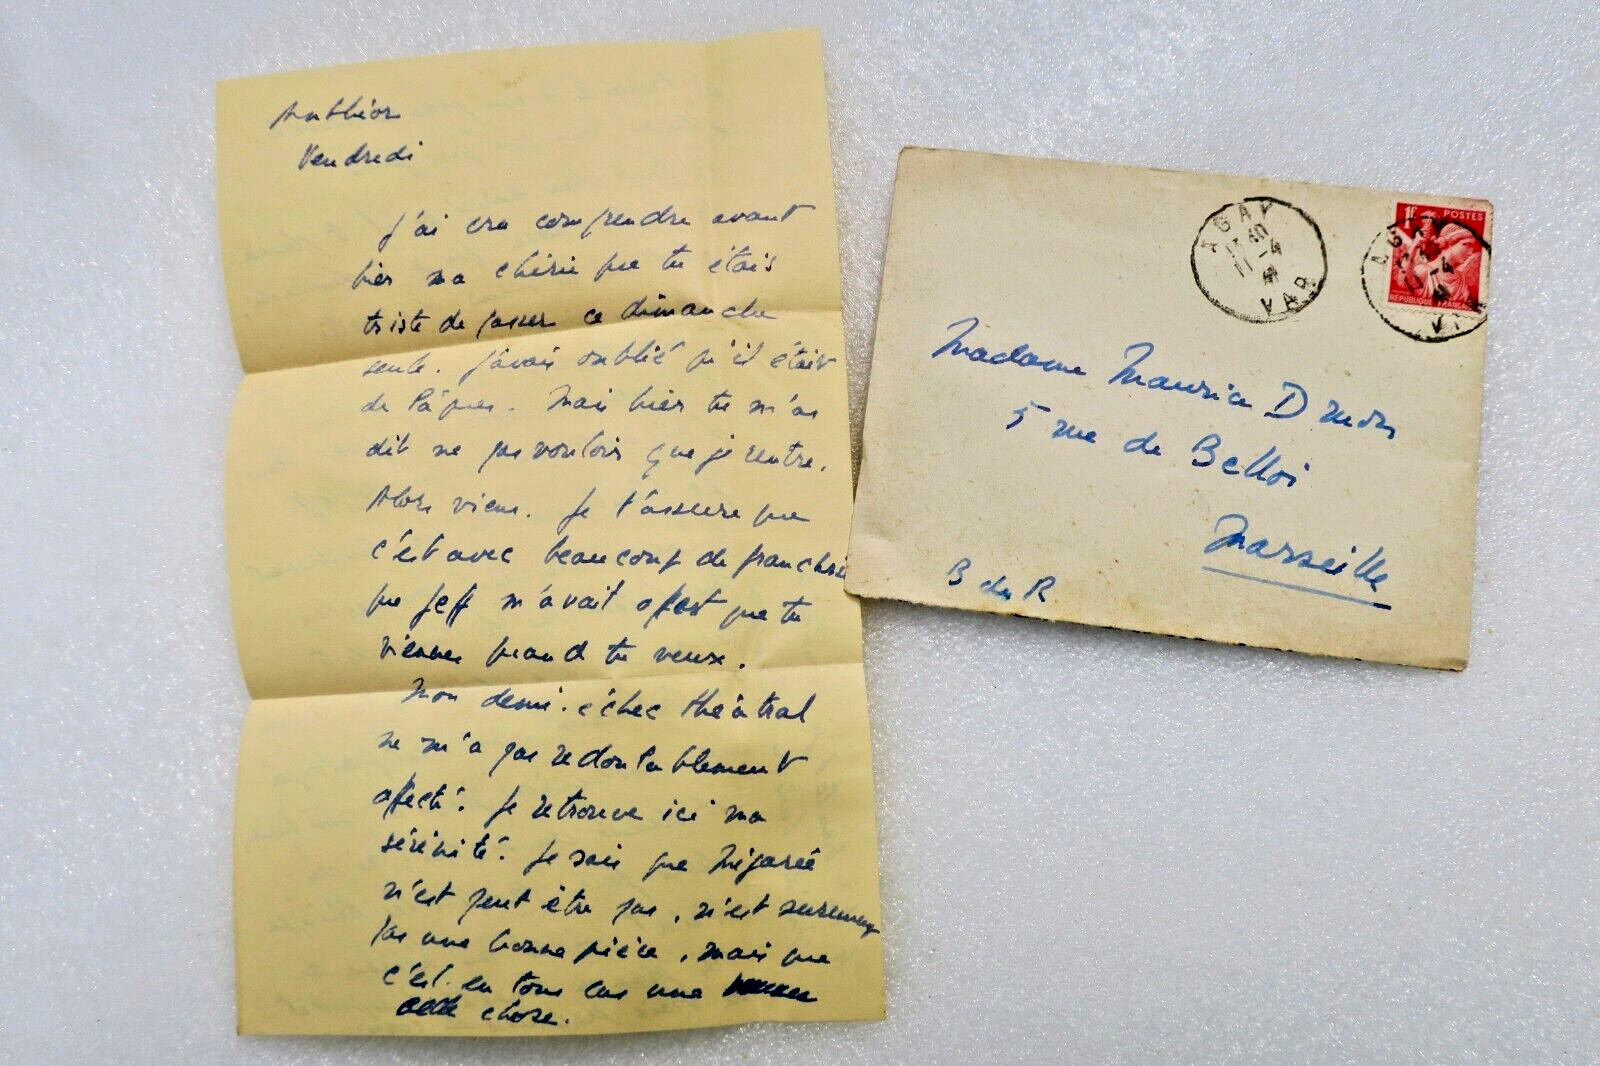 Anthéor
Vendredi
J'ai cru comprendre avant
hier ma chérie que tu étais
triste de passer ce dimanche
seule. J'avais oublié qu'il était
de Pâques. Mais hier tu m'as
dit ne pas vouloir que je rentre.
Alors viens. Je t'assure que
c'est avec beaucoup de franchise
que Jeff m'avait offert que tu
viennes quand tu veux.
Mon demi-échec théâtral
ne m'a pas redoutablement
affecté. Je retrouve ici ma
sérénité. Je sais que Mégarée
n'est peut être pas, n'est surement
pas une bonne pièce, mais que
c'est en tous cas une
chose.
AGAY
11 -4
VAR
AGAY
11 -4
VAR
1F POSTES
REPUBLIQUE FRANÇAISE
Madame Maurice Druon
5 rue de Belloi
Marseille
B du R